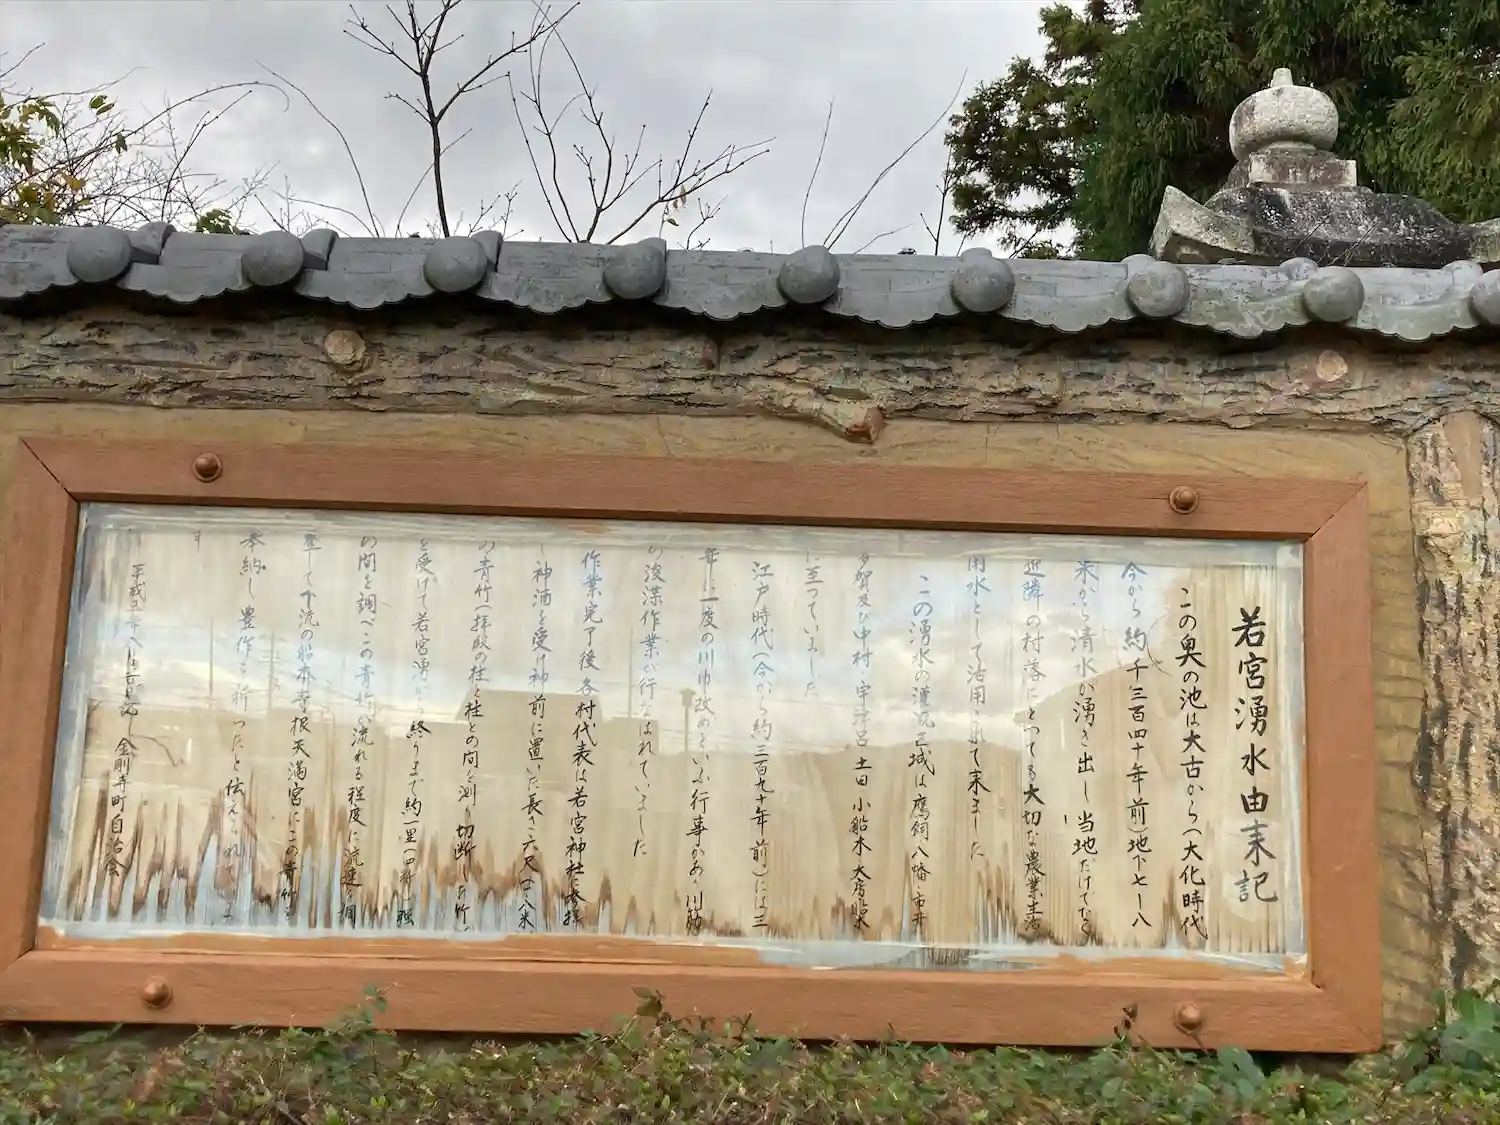 若宮湧水由来記
この奥の池は大古から(大化時代
今から約千三百四十年前)地下七~八
米から清水が湧き出し当地だけでなく
近隣の村落にとっても大切な農業生活
用水として活用されて来ました
この湧水の灌漑区域は鷹飼 八幡 市井
多賀及び中村 宇津呂 土田 小船木 大房 船木
に至っていました
江戸時代(今から約三百九十年前)には三
年に一度の川巾改めという行事があり川筋
の浚渫作業が行なはれていました
作業完了後各村代表は若宮神社に参拝
し神酒を受け神前に置いた長さ六尺(一八米
の青竹(拝殿の柱と柱との間を測り切断した竹)
を受けて若宮湧から終りまで約一里(四粁)強
の間を調べこの青竹が流れる程度に流速を調
整して下流の船木寺根天満宮にこの青竹を
奉納し豊作を祈ったと伝えられていま
す
平成 年八月吉日記し 金剛寺町自治会